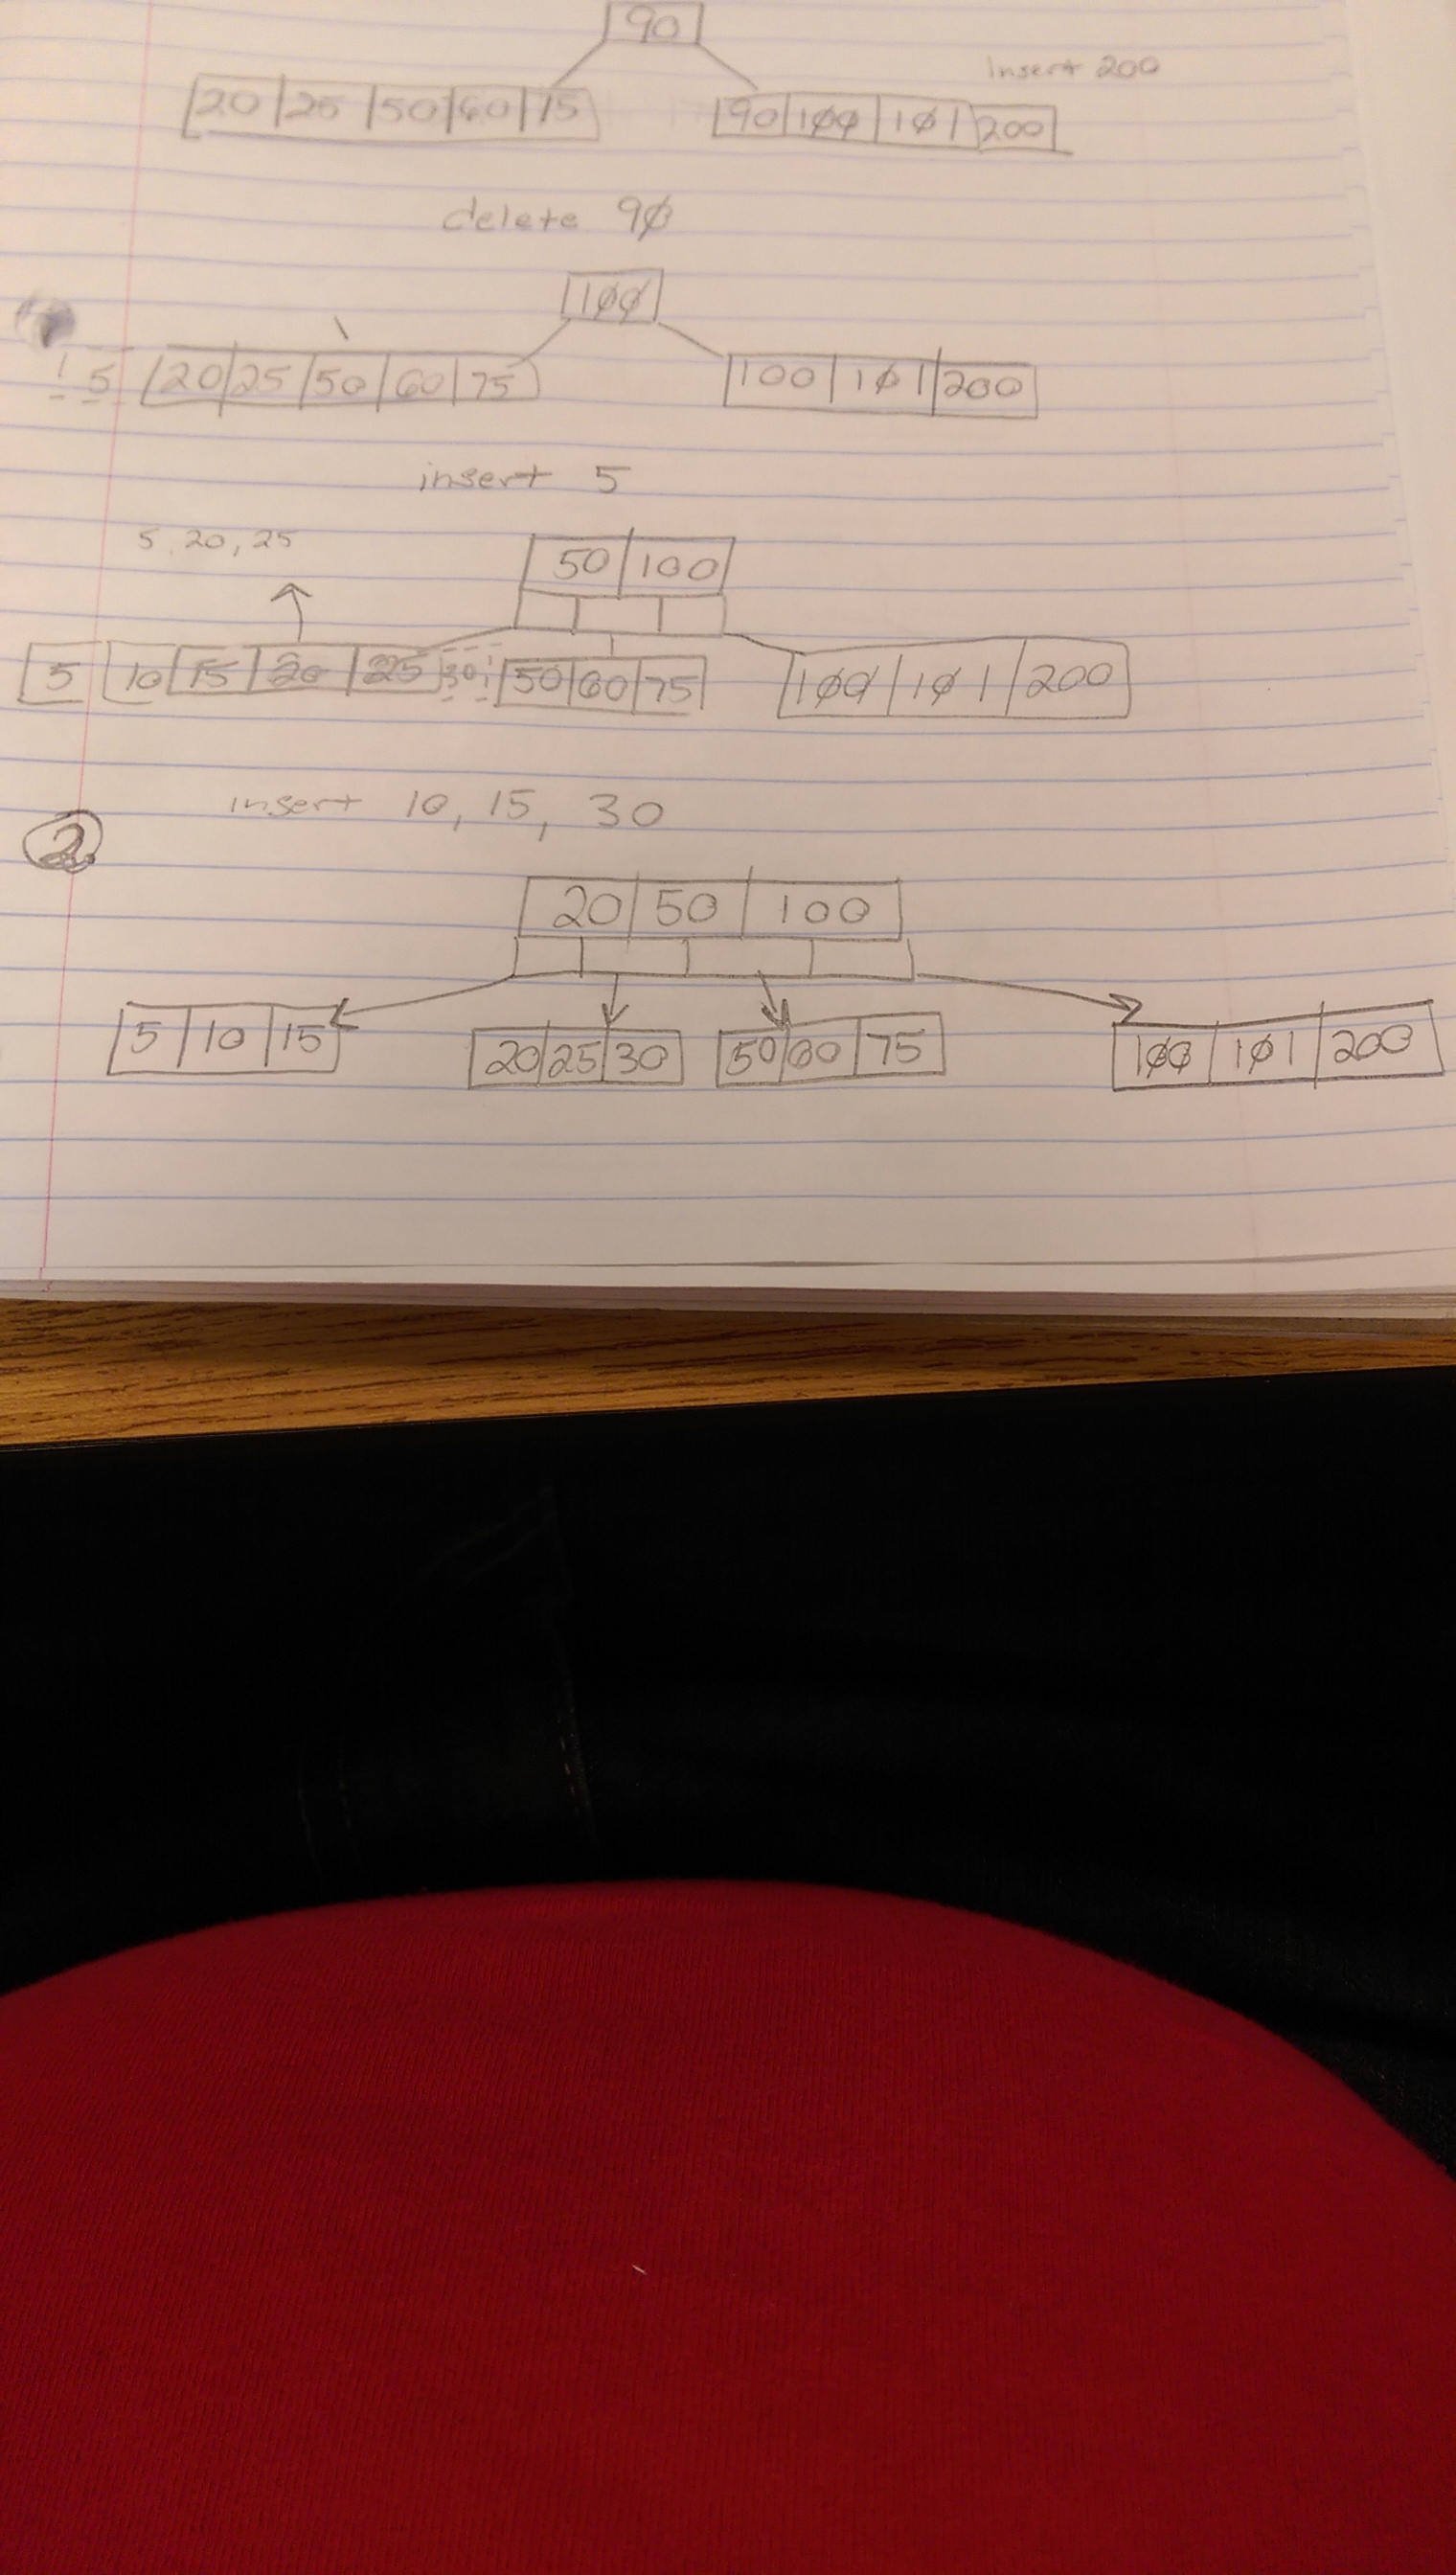 90
Insert 200
20 25 50 60 75 90 100 101 200
delete 90
100
5 20 25 50 60 75 100 101 200
insert 5
5, 20, 25
50 100
5 10 15 20 25 30 50 60 75 100 101 200
insert 10, 15, 30
2.
20 50 100
5 10 15 20 25 30 50 60 75 100 101 200